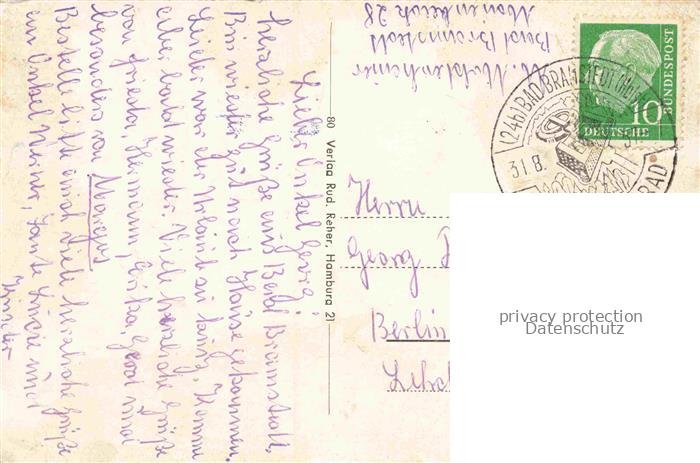 Lieber Onkel Georg,
herzliche Grüße aus Bad Bramstedt.
Bin wieder gut nach Hause gekommen.
Leider war der Urlaub zu kurz. Komme
aber bald wieder. Viele herzliche Grüße
von Frieda, Hermann, Erika, Gerd und
besonders von Margus
Bestelle bitte auch viele herzliche Grüße
an Onkel Werner, Tante Lucie und
Kinder
80 Verlag Rud. Reher, Hamburg 21
Bad Bramstedt
28
Herrn
Georg
Berlin
(24b) BAD BRAMSTEDT
31.8.
BAD
10
DEUTSCHE
BUNDESPOST
privacy protection
Datenschutz